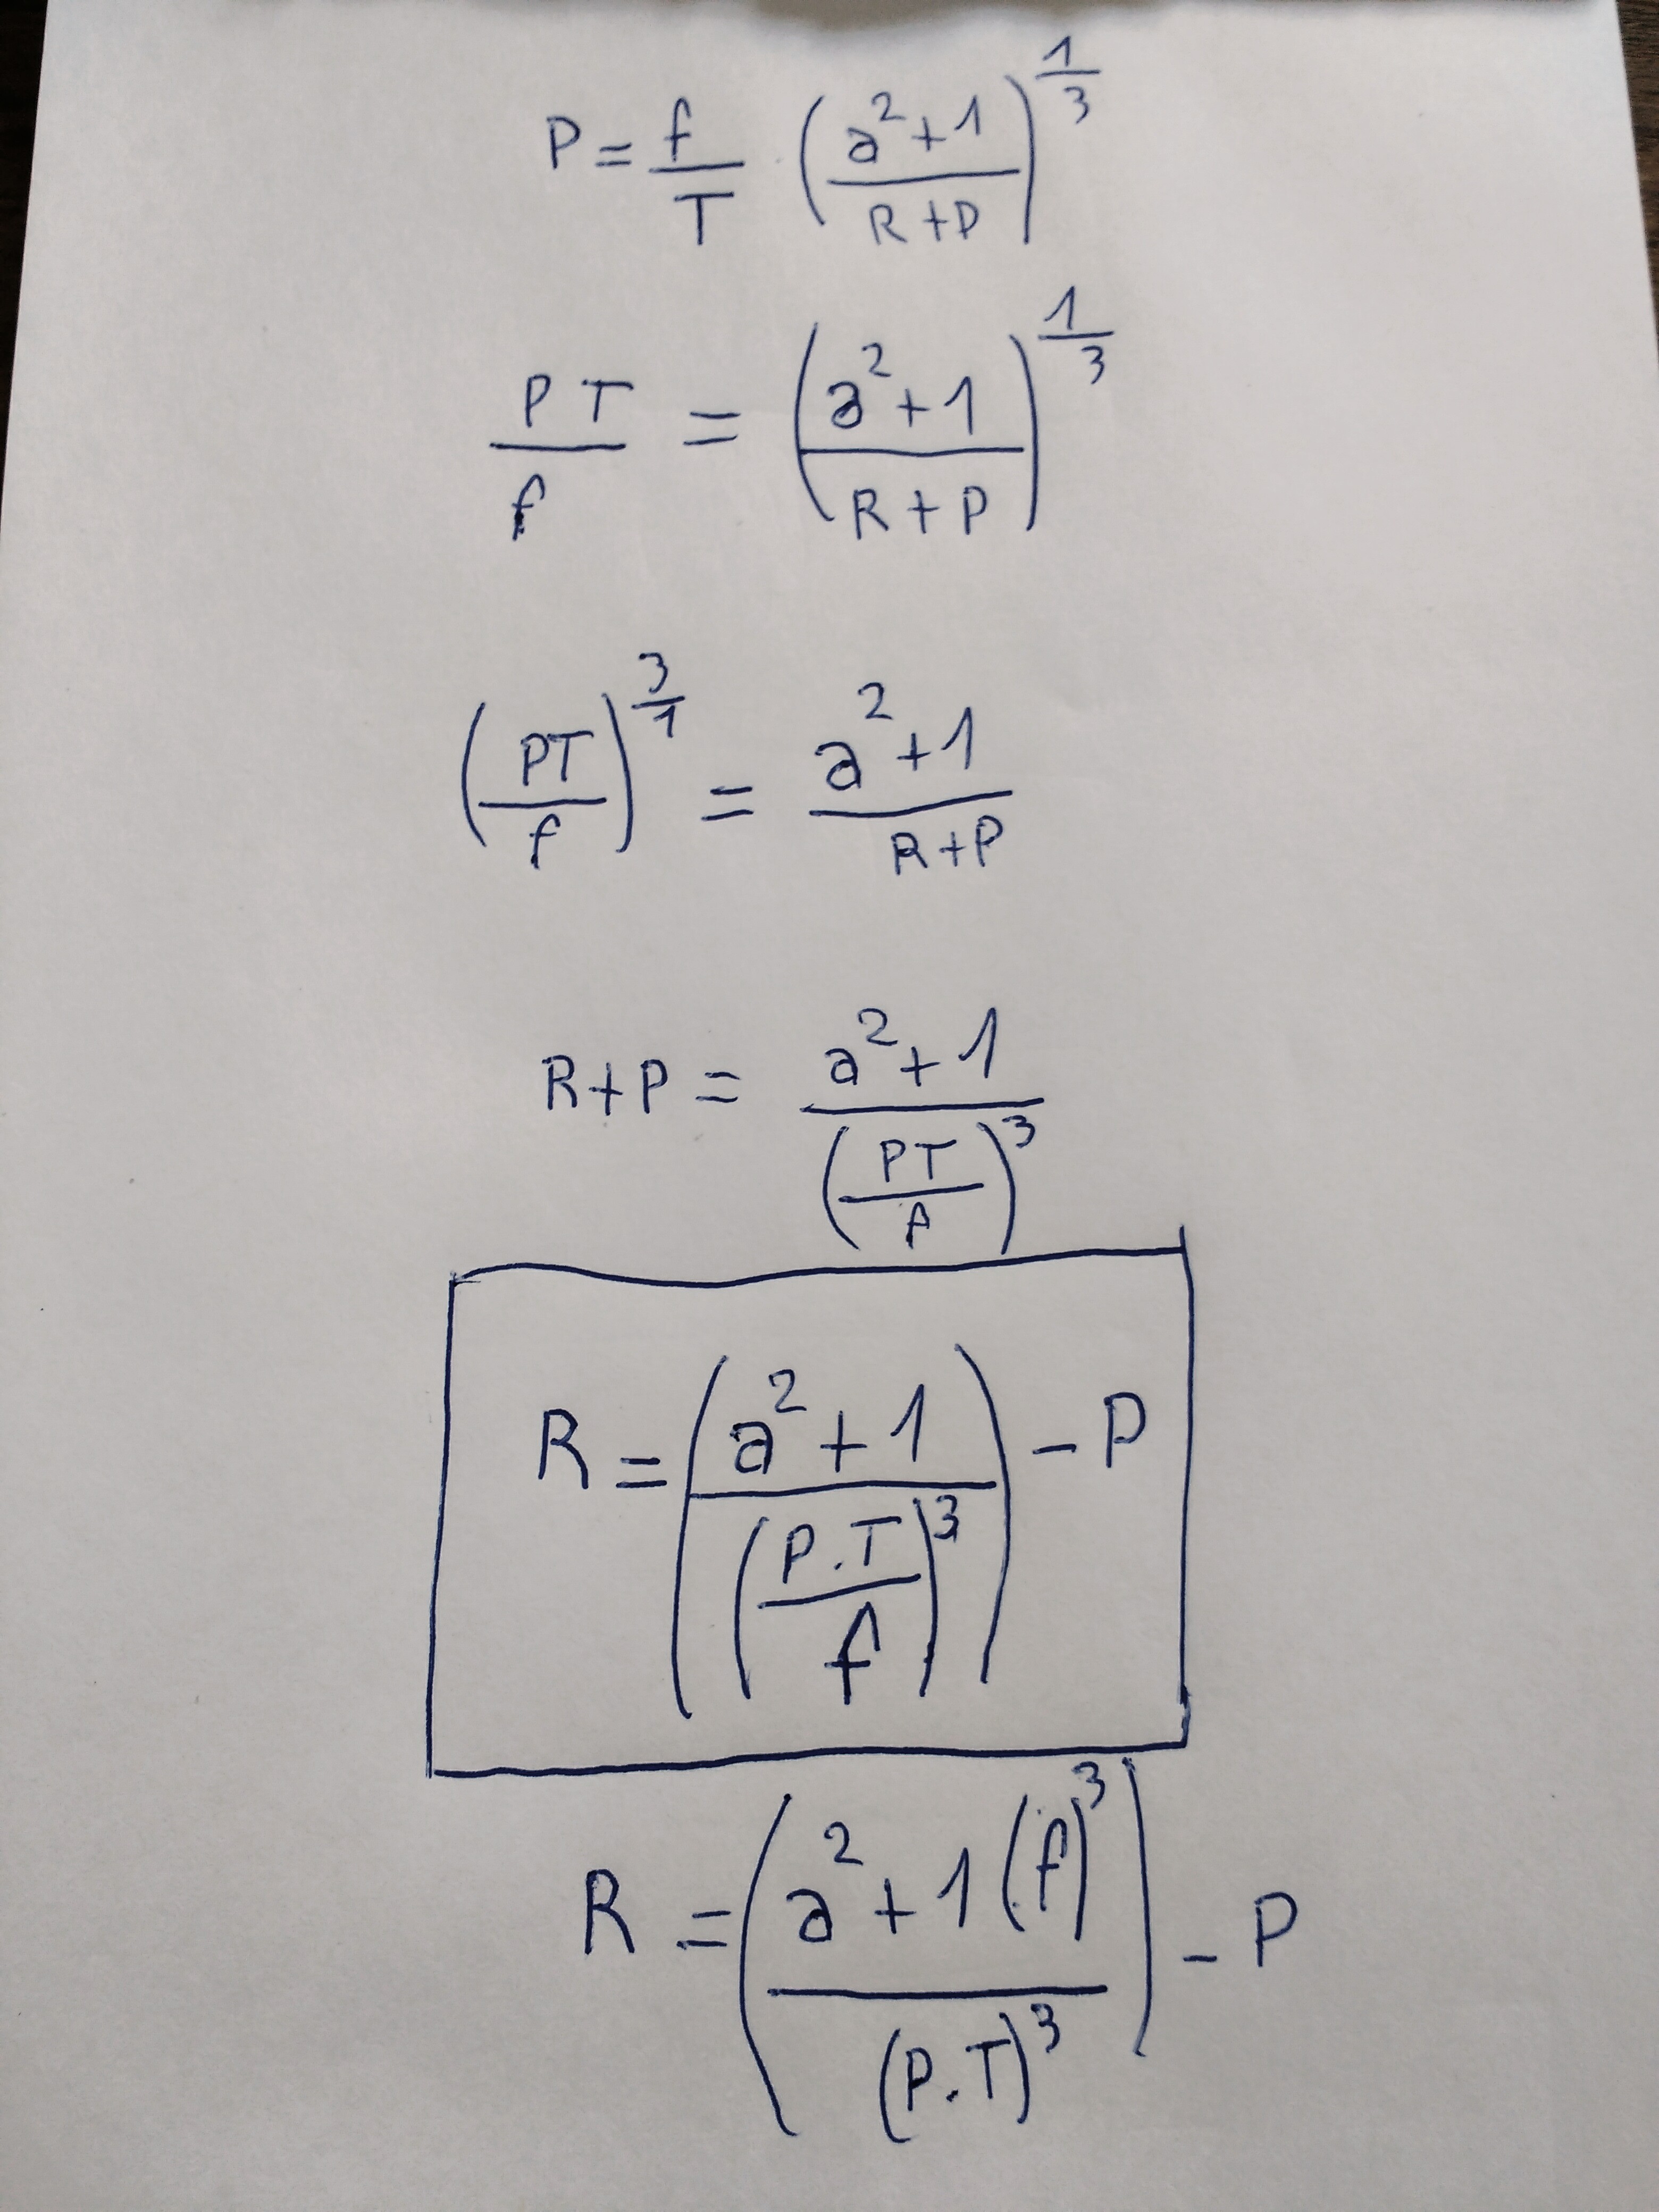 P = f/T (a²+1 / R+P)^(1/3)
PT/f = (a²+1 / R+P)^(1/3)
(PT/f)^(3/1) = a²+1 / R+P
R+P = a²+1 / (PT/f)³
R = (a²+1 / (P.T/f)³) - P
R = (a²+1(f)³ / (P.T)³) - P